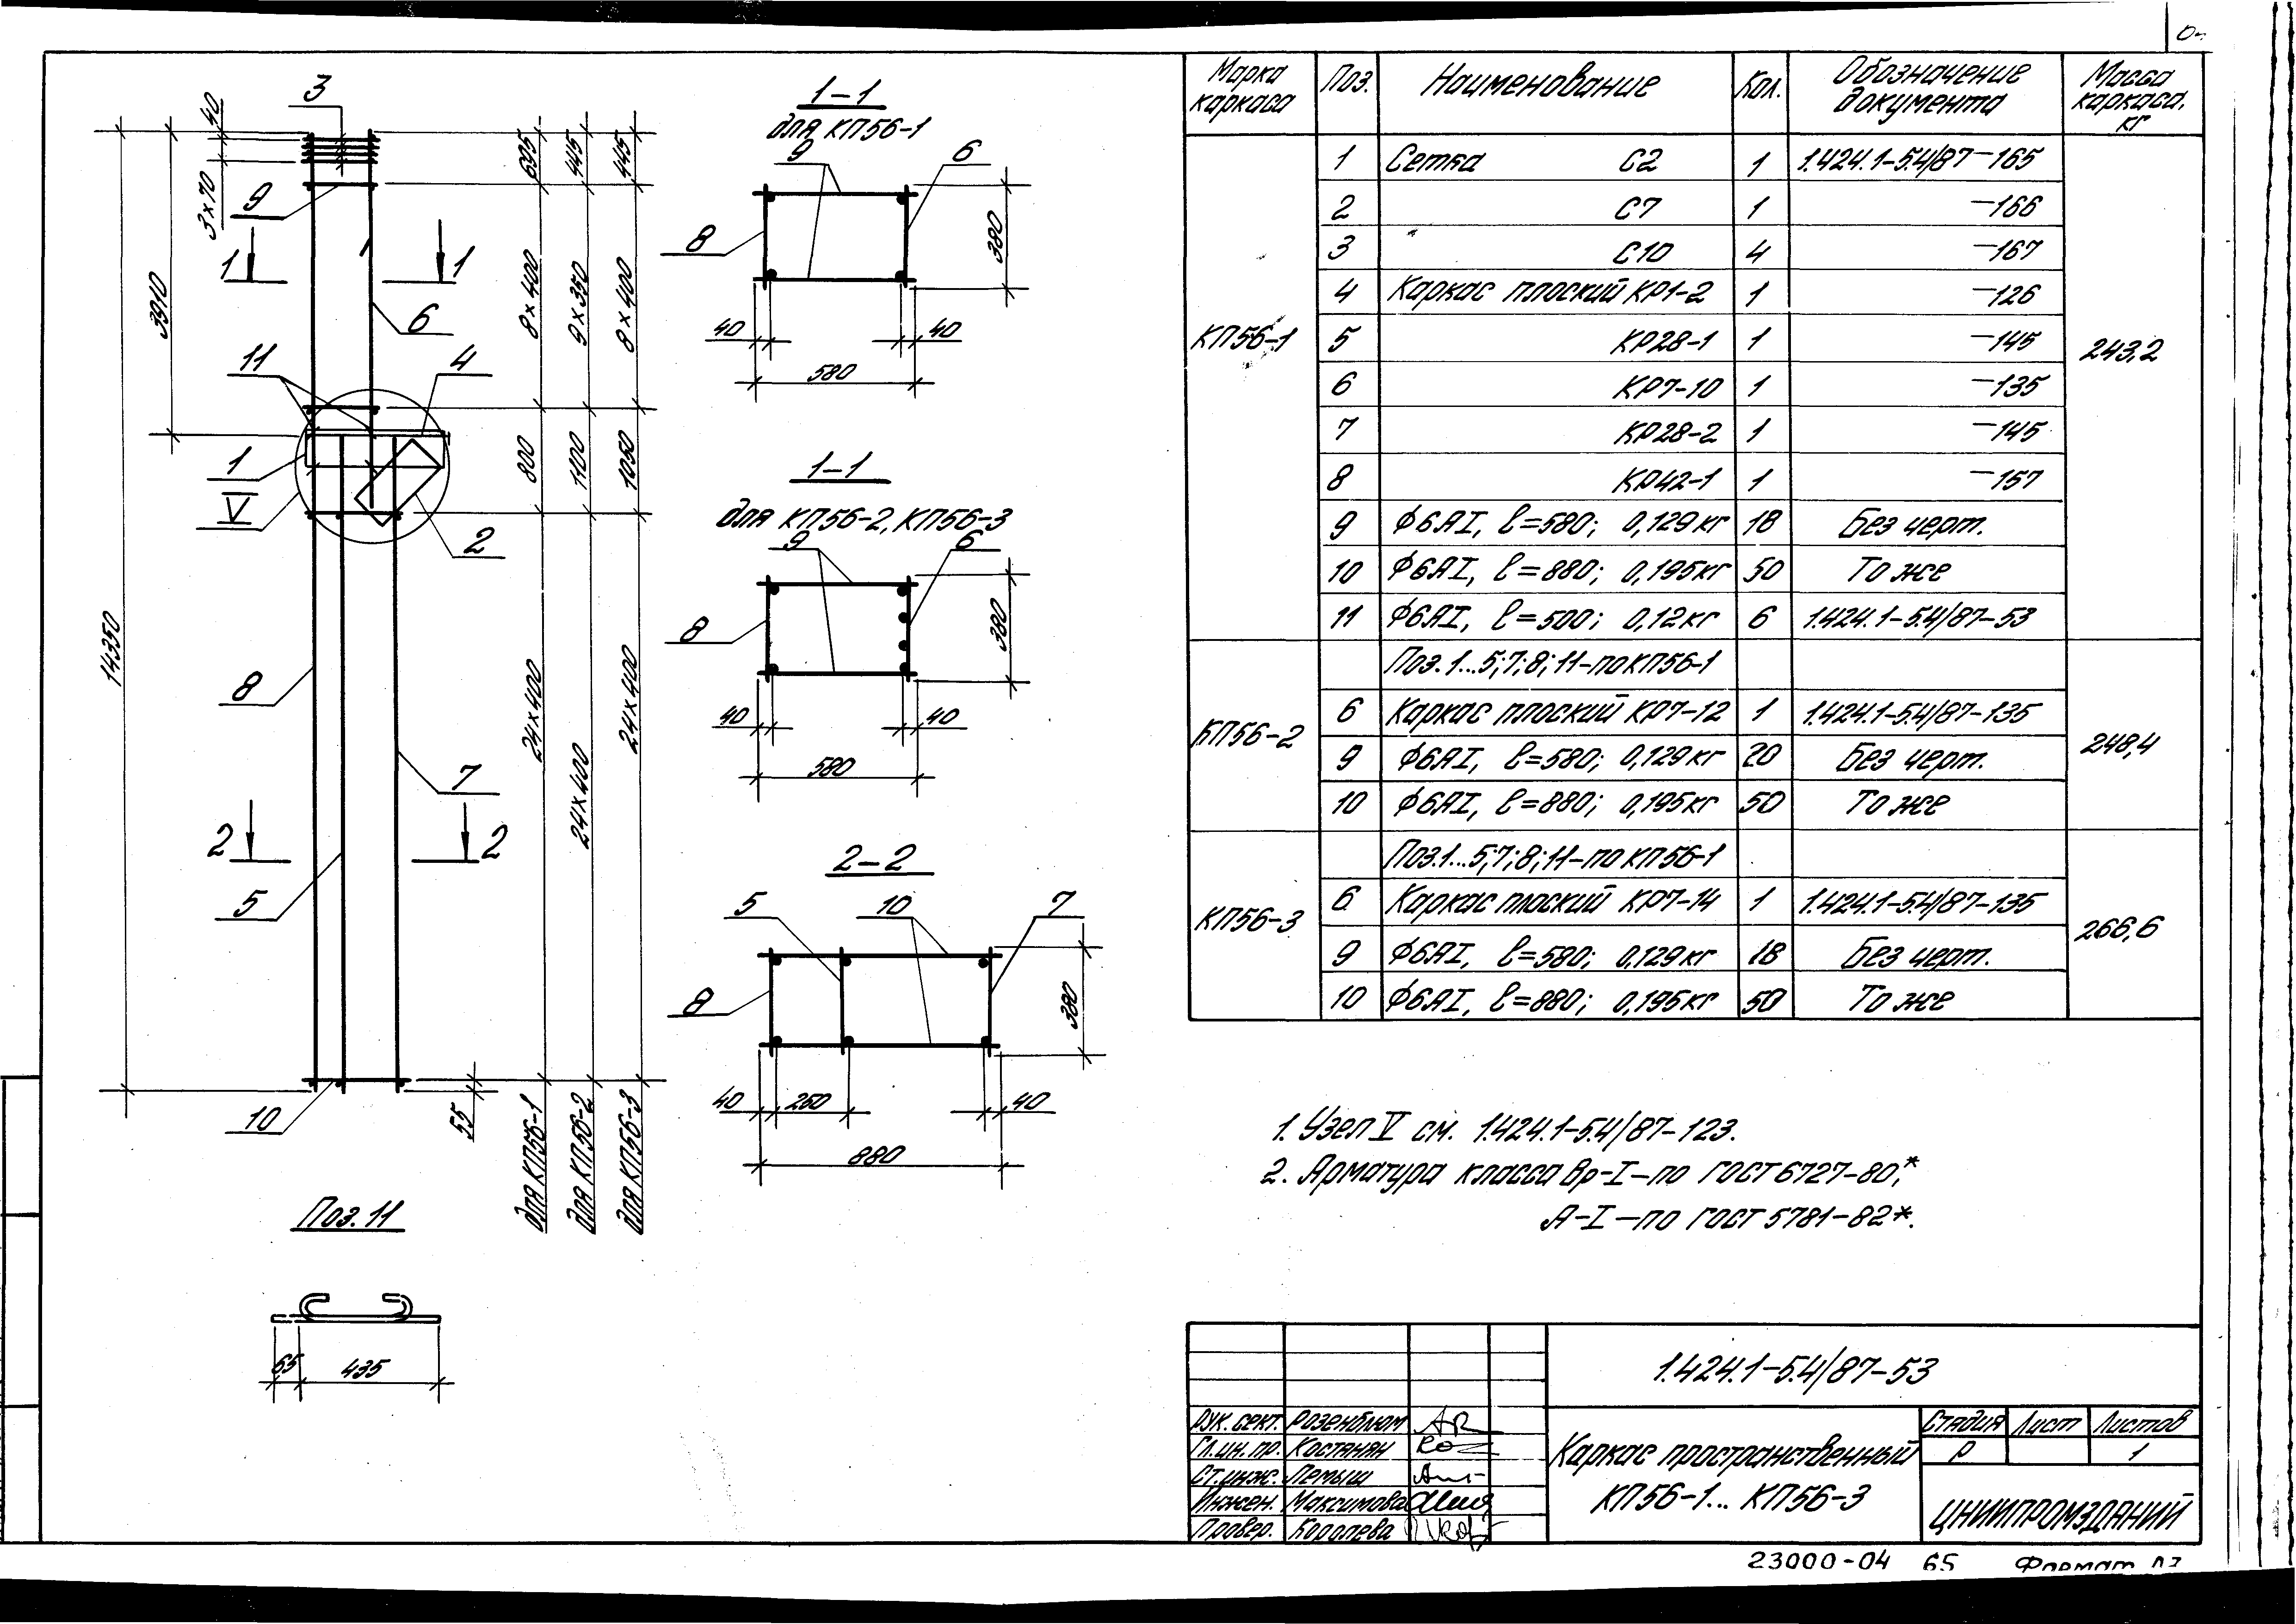 3
40
3×70
9
1
1
3910
6
11
4
1
V
2
14350
8
7
2
2
5
10
55
695
445
445
8×400
9×350
8×400
800
1100
1050
24×400
24×400
24×400
для КП56-1
для КП56-2
для КП56-3
Поз. 11
65
435
1-1
для КП56-1
9
6
8
380
40
40
580
1-1
для КП56-2, КП56-3
9
6
8
380
40
40
580
2-2
5
10
7
8
380
40
260
40
880
Марка каркаса Поз. Наименование Кол. Обозначение документа Масса каркаса, кг
КП56-1 243,2
1 Сетка С2 1 1.424.1-5.4/87-165
2 С7 1 -166
3 С10 4 -167
4 Каркас плоский КР1-2 1 -126
5 КР28-1 1 -145
6 КР7-10 1 -135
7 КР28-2 1 -145
8 КР42-1 1 -157
9 ϕ6АI, ℓ=580; 0,129кг 18 Без черт.
10 ϕ6АI, ℓ=880; 0,195кг 50 То же
11 ϕ6АI, ℓ=500; 0,12кг 6 1.424.1-5.4/87-53
КП56-2 248,4
Поз. 1...5;7;8;11-по КП56-1
6 Каркас плоский КР7-12 1 1.424.1-5.4/87-135
9 ϕ6АI, ℓ=580; 0,129кг 20 Без черт.
10 ϕ6АI, ℓ=880; 0,195кг 50 То же
КП56-3 266,6
Поз.1...5;7;8;11-по КП56-1
6 Каркас плоский КР7-14 1 1.424.1-5.4/87-135
9 ϕ6АI, ℓ=580; 0,129кг 18 Без черт.
10 ϕ6АI, ℓ=880; 0,195кг 50 То же
1. Узел V см. 1.424.1-5.4/87-123.
2. Арматура класса Вр-I-по ГОСТ 6727-80*,
А-I-по ГОСТ 5781-82*.
1.424.1-5.4/87-53
Рук. сект. Розенблюм
Гл. ин. пр. Костанян
Ст. инж. Лемыш
Инжен. Максимова
Провер. Королева
Каркас пространственный
КП56-1... КП56-3
Стадия Лист Листов
Р 1
ЦНИИПРОМЗДАНИЙ
23000-04 65 Формат